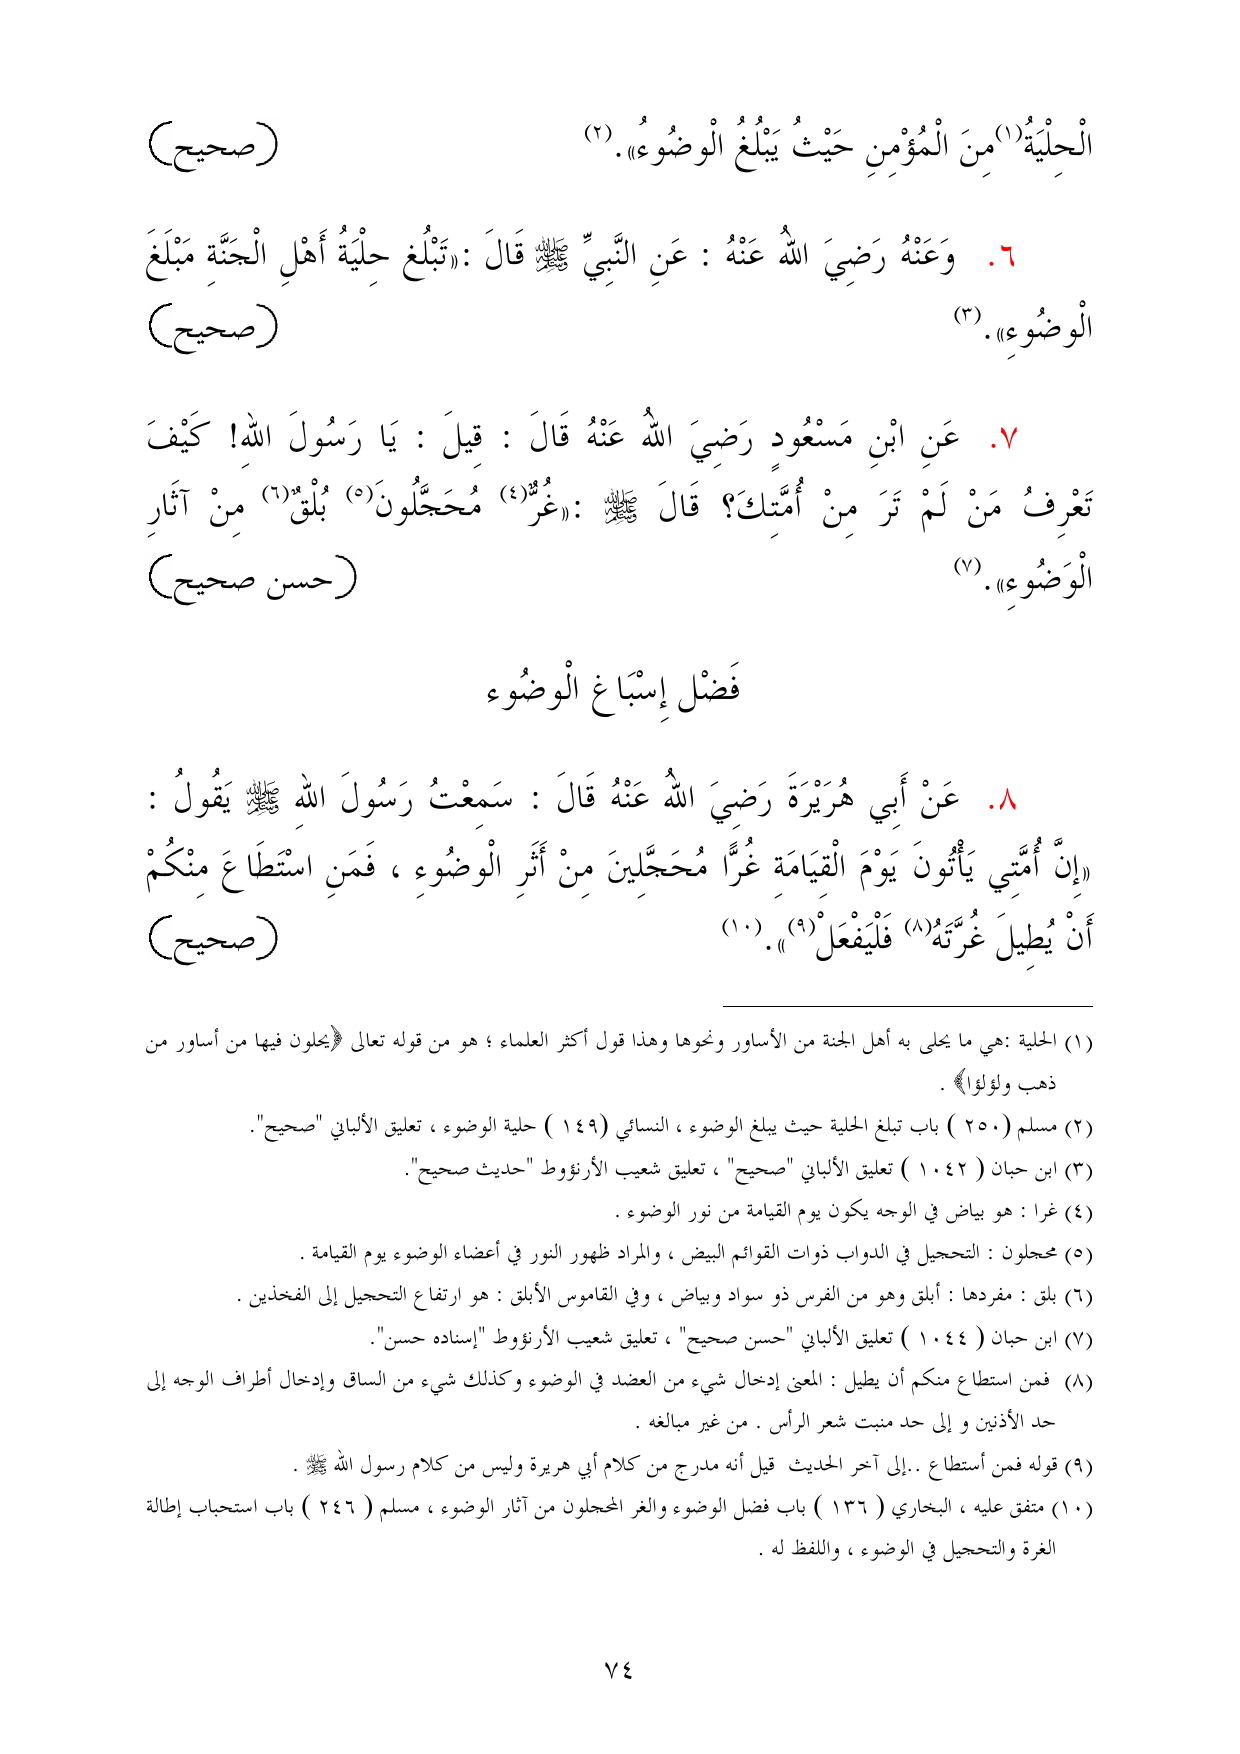 الْحِلْيَةُ(١)مِنَ الْمُؤْمِنِ حَيْثُ يَبْلُغُ الْوضُوءُ».(٢) (صحيح)
٦. وَعَنْهُ رَضِيَ اللهُ عَنْهُ : عَنِ النَّبِيِّ ﷺ قَالَ :«تَبْلُغ حِلْيَةُ أَهْلِ الْجَنَّةِ مَبْلَغَ
الْوضُوءِ».(٣) (صحيح)
٧. عَنِ ابْنِ مَسْعُودٍ رَضِيَ اللهُ عَنْهُ قَالَ : قِيلَ : يَا رَسُولَ اللهِ! كَيْفَ
تَعْرِفُ مَنْ لَمْ تَرَ مِنْ أُمَّتِكَ؟ قَالَ ﷺ :«غُرٌّ(٤) مُحَجَّلُونَ(٥) بُلْقٌ(٦) مِنْ آثَارِ
الْوَضُوءِ».(٧) (حسن صحيح)
فَضْل إِسْبَاغ الْوضُوء
٨. عَنْ أَبِي هُرَيْرَةَ رَضِيَ اللهُ عَنْهُ قَالَ : سَمِعْتُ رَسُولَ اللهِ ﷺ يَقُولُ :
«إِنَّ أُمَّتِي يَأْتُونَ يَوْمَ الْقِيَامَةِ غُرًّا مُحَجَّلِينَ مِنْ أَثَرِ الْوضُوءِ ، فَمَنِ اسْتَطَاعَ مِنْكُمْ
أَنْ يُطِيلَ غُرَّتَهُ(٨) فَلْيَفْعَلْ(٩)».(١٠) (صحيح)
(١) الحلية :هي ما يحلى به أهل الجنة من الأساور ونحوها وهذا قول أكثر العلماء ؛ هو من قوله تعالى ﴿يحلون فيها من أساور من
ذهب ولؤلؤا﴾ .
(٢) مسلم (٢٥٠ ) باب تبلغ الحلية حيث يبلغ الوضوء ، النسائي (١٤٩ ) حلية الوضوء ، تعليق الألباني "صحيح".
(٣) ابن حبان ( ١٠٤٢ ) تعليق الألباني "صحيح" ، تعليق شعيب الأرنؤوط "حديث صحيح".
(٤) غرا : هو بياض في الوجه يكون يوم القيامة من نور الوضوء .
(٥) محجلون : التحجيل في الدواب ذوات القوائم البيض ، والمراد ظهور النور في أعضاء الوضوء يوم القيامة .
(٦) بلق : مفردها : أبلق وهو من الفرس ذو سواد وبياض ، وفي القاموس الأبلق : هو ارتفاع التحجيل إلى الفخذين .
(٧) ابن حبان ( ١٠٤٤ ) تعليق الألباني "حسن صحيح" ، تعليق شعيب الأرنؤوط "إسناده حسن".
(٨) فمن استطاع منكم أن يطيل : المعنى إدخال شيء من العضد في الوضوء وكذلك شيء من الساق وإدخال أطراف الوجه إلى
حد الأذنين و إلى حد منبت شعر الرأس . من غير مبالغه .
(٩) قوله فمن أستطاع ..إلى آخر الحديث قيل أنه مدرج من كلام أبي هريرة وليس من كلام رسول الله ﷺ .
(١٠) متفق عليه ، البخاري ( ١٣٦ ) باب فضل الوضوء والغر المحجلون من آثار الوضوء ، مسلم ( ٢٤٦ ) باب استحباب إطالة
الغرة والتحجيل في الوضوء ، واللفظ له .
٧٤